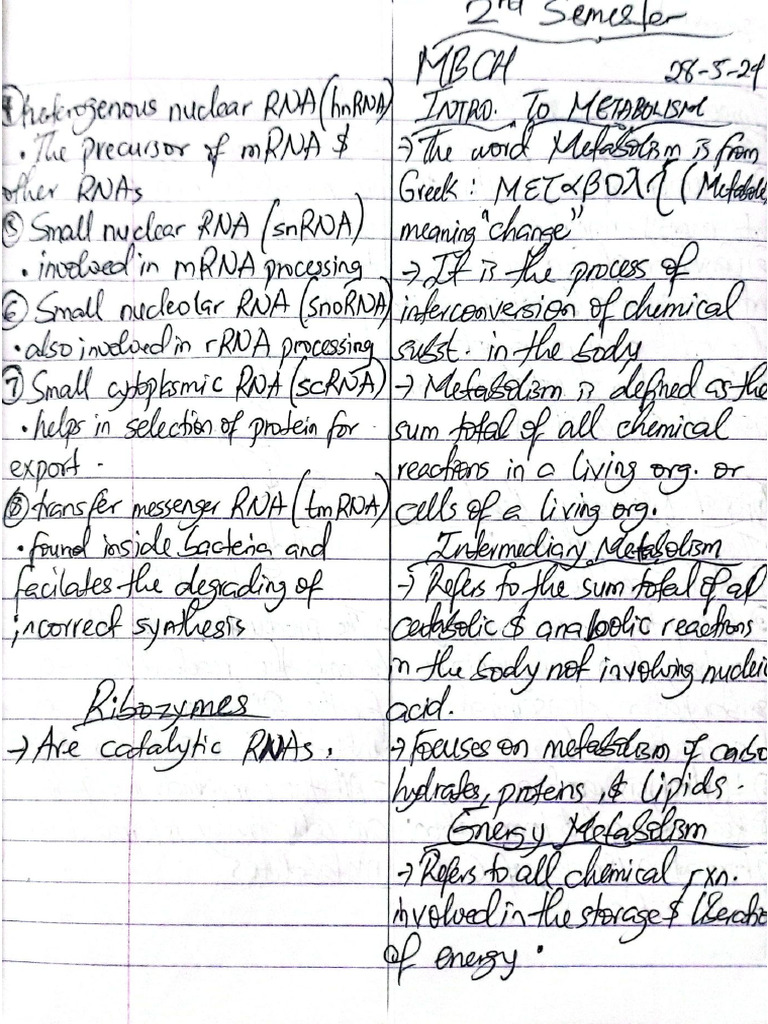 ④ heterogenous nuclear RNA (hnRNA)
• The precursor of mRNA &
other RNAs
⑤ Small nuclear RNA (snRNA)
• involved in mRNA processing
⑥ Small nucleolar RNA (snoRNA)
• also involved in rRNA processing
⑦ Small cytoplsmic RNA (scRNA)
• helps in selection of protein for
export -
⑧ transfer messenger RNA (tmRNA)
• found inside bacteria and
facilates the degrading of
incorrect synthesis
Ribozymes
→ Are catalytic RNAs.
2nd Semester
MBCH 28-5-24
INTRO. TO METABOLISM
→ The word Metabolism is from
Greek: ΜΕΤαβολή (Metabole
meaning "change"
→ It is the process of
interconversion of chemical
subst. in the body
→ Metabolism is defined as the
sum total of all chemical
reactions in a living org. or
cells of a living org.
Intermediary Metabolism
→ Refers to the sum total of all
catabolic & anabolic reactions
in the body not involving nuclei
acid.
→ Focuses on metabolism of carbo
hydrates, proteins, & lipids.
Energy Metabolism
→ Refers to all chemical rxn.
involved in the storage & liberatio
of energy.